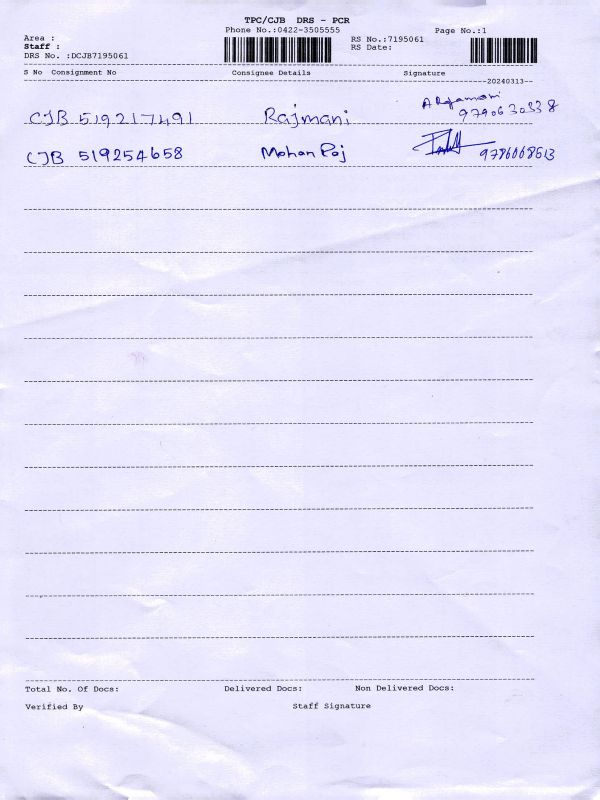 TPC/CJB DRS - PCR
Phone No.:0422-3505555 Page No.:1
Area : RS No.:7195061
Staff : RS Date:
DRS No. :DCJB7195061
S No Consignment No Consignee Details Signature
20240313
CJB 519217491 Rajmani A Rajamani
9790630338
CJB 519254658 Mohan Raj 9786068513
Total No. Of Docs: Delivered Docs: Non Delivered Docs:
Verified By Staff Signature